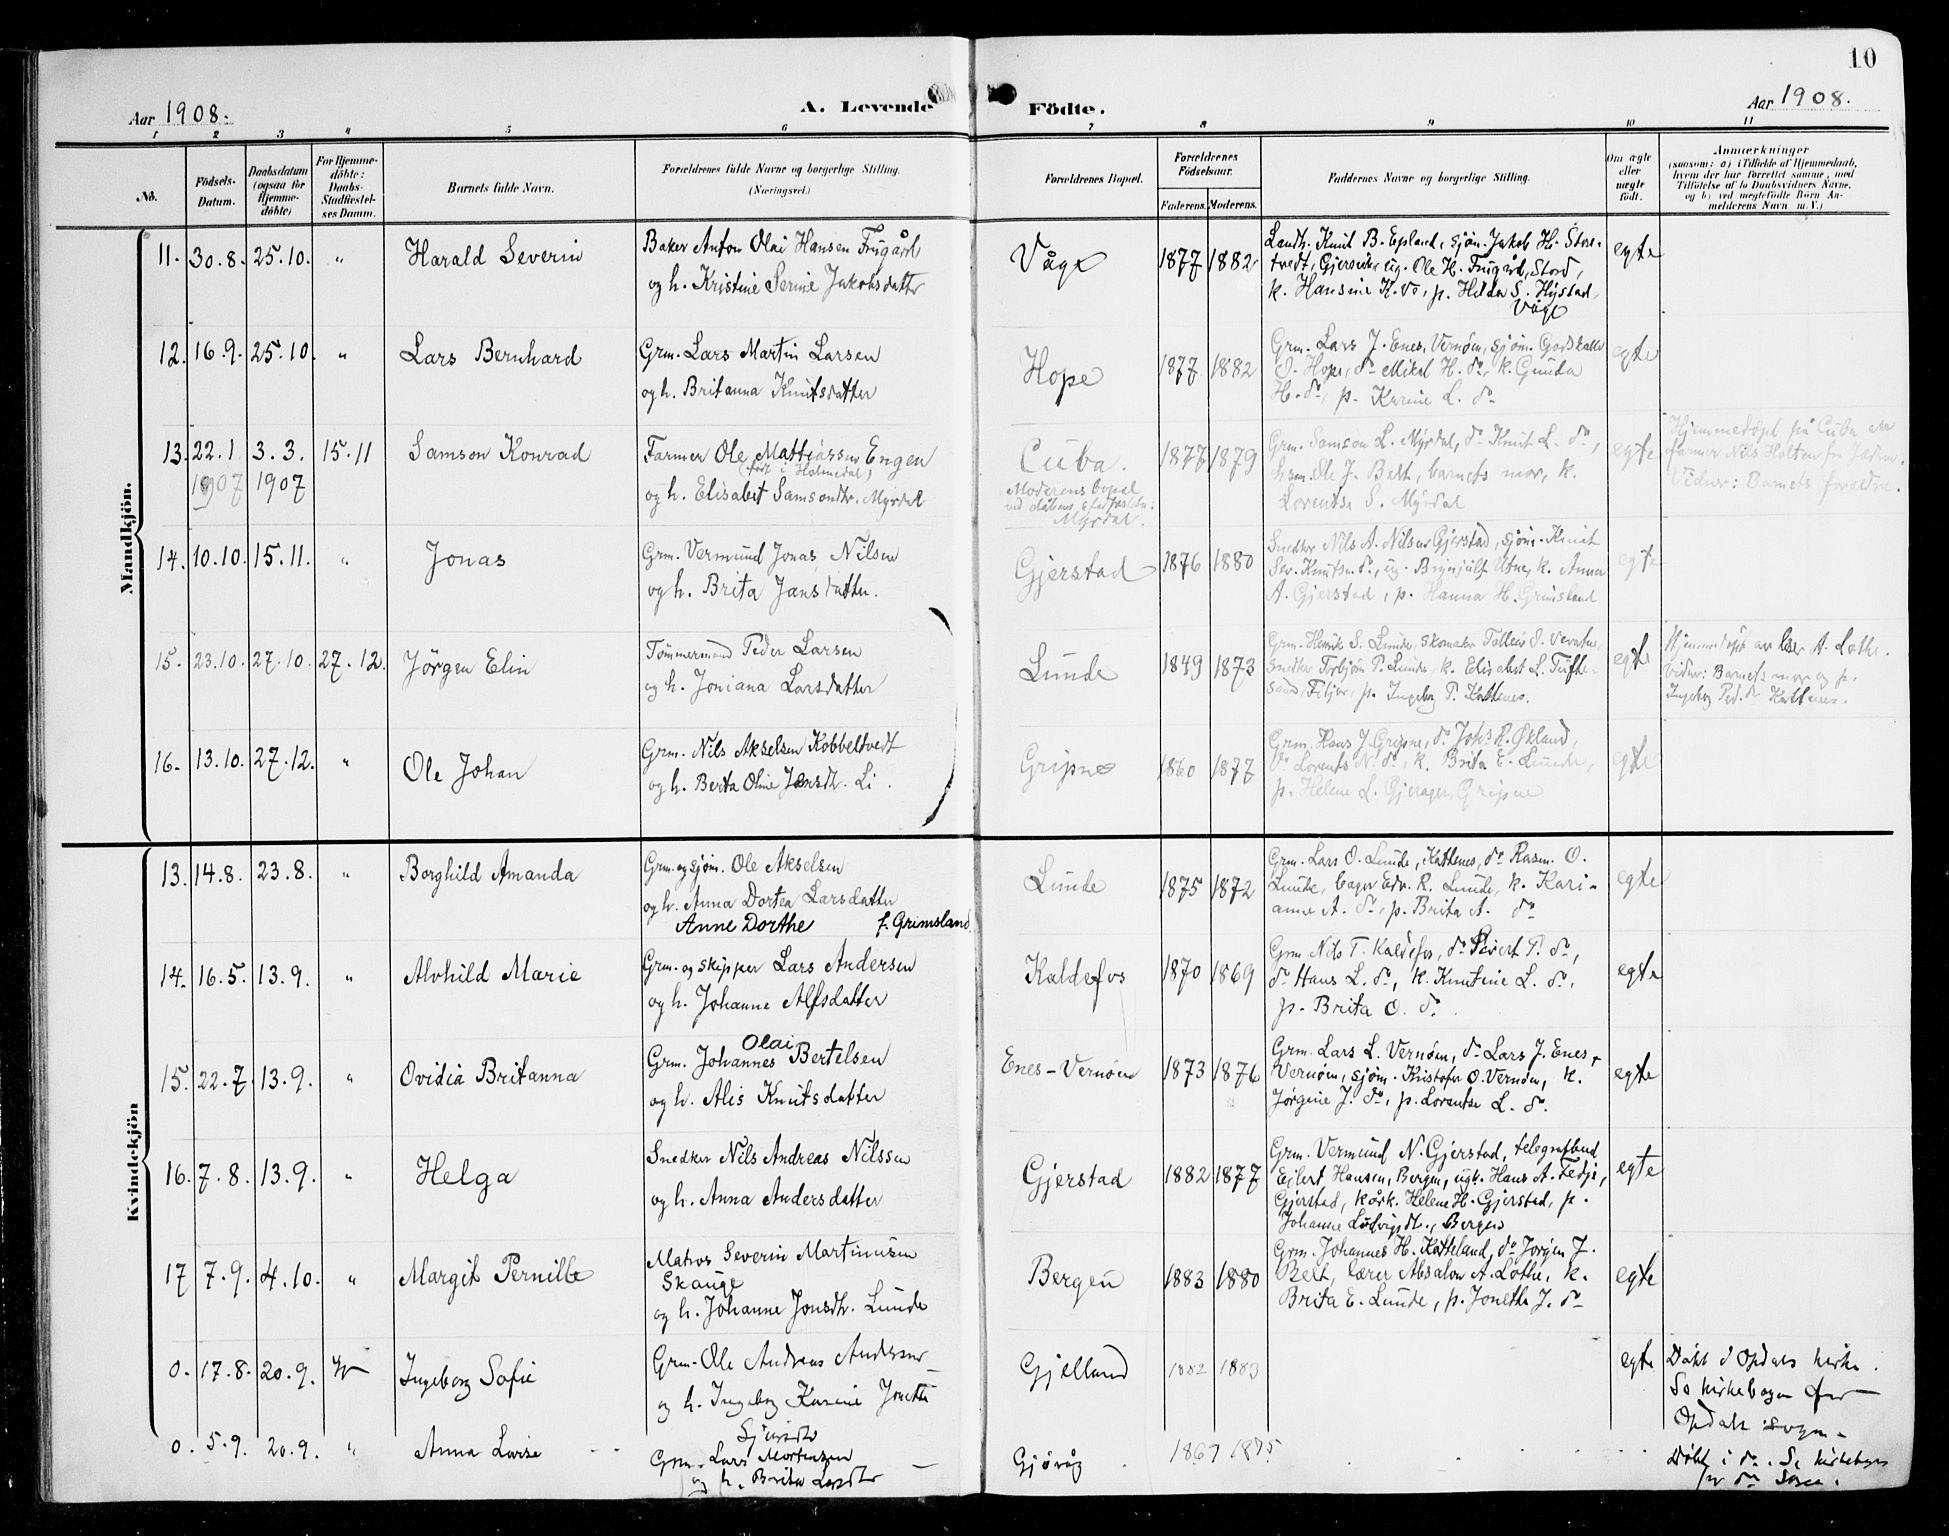 10
Aar 1908.
A. Levende Födte.
Aar 1908.
1 2 3 4 5 6 7 8 9 10 11
No.
Födsels-Datum.
Daabsdatum (ogsaa for Hjemme-döbte)
For Hjemme-döbte: Daabs-Stadfæstel-ses Datum.
Barnets fulde Navn.
Forældrenes fulde Navne og borgerlige Stilling.
(Næringsvei.)
Forældrenes Bopæl.
Forældrenes Födselsaar.
Faderens. Moderens.
Faddernes Navne og borgerlige Stilling.
Om ægte eller uægte födt.
Anmærkninger
(saasom: a) i Tilfælde af Hjemmedaab,
hvem der har forrettet samme, med
Tilföielse af to Daabsvidners Navne,
og b) ved uegtefödte Börn An-
melderens Navn m. V.)
Mandkjön.
11. 30.8. 25.10. " Harald Severin
Baker Anton Olai Hansen Frugård
og h. Kristine Serine Jakobsdatter
Våge 1877 1882
Landh. Knut B. Epland, sjöm. Jakob H. Store-
tvedt, Gjersvik, ug. Ole H. Frugård, Stord,
k. Hansine K. do, p. Hilda S. Hystad,
Våge
egte
12. 16.9. 25.10. " Lars Bernhard
Grm. Lars Martin Larsen
og h. Britanna Knutsdatter
Hope 1877 1882
Grm. Lars J. Enes, Vernöen, sjöm. Gotskalk
O. Hope, do Mikal H. do, k. Gunda
H. do, p. Karine L. do
egte
13. 22.1. 3.3. 15.11 Samson Konrad
1907 1907
Farmer Ole Mattiassen Engen
(født i Holmedal)
og h. Elisabet Samsondtr. Myrdal
Cuba.
Moderens bopæl
ved dåbens stadfæstelse:
Myrdal.
1877 1879
Grm. Samson L. Myrdal, do Knut L. do,
Ole J. Belt, barnets mor, k.
Lorentse S. Myrdal
egte
Hjemmedøpt på Cuba av
farmer Nils Holten fra
Vidner: Barnets foreldre.
14. 10.10. 15.11. " Jonas
Grm. Vermund Jonas Nilsen
og h. Brita Jansdatter.
Gjerstad 1876 1880
Snedker Nils A. Nilsen Gjerstad, sjöm. Knut
Sev. Knutsen do, ug. Brynjulf Utne, k. Anna
A. Gjerstad, p. Hanna H. Grimsland
egte
15. 23.10. 27.10. 27.12. Jörgen Elin
Tömmermand Peder Larsen
og h. Joniana Larsdatter
Lunde 1849 1873
Grm. Henrik S. Lunde, skomaker Tolleiv O.
snedker Torbjörn P. Lunde, k. Elisabet L. Tufte-
sand, Fitjar, p. Ingeborg P. Kattenes.
egte
Hjemmedøpt av lærer A. Lothe.
Vidner: Barnets mor og p.
Ingeborg Ped.dr Kattenes.
16. 13.10. 27.12. " Ole Johan
Grm. Nils Akselsen Kobbeltvedt
og h. Berta Oline Jonsdtr. Li.
Gripne 1860 1877
Grm. Hans J. Gripne, do Johs R. Økland,
Lorents N. do, k. Brita E. Lunde,
p. Helene L. Gjerager, Gripne
egte
Kvindekjön
13. 14.8. 23.8. " Borghild Amanda
Grm. og sjöm. Ole Akselsen
og h. Anna Dortea Larsdatter
Anne Dorthe f. Grimsland
Lunde 1875 1872
Grm. Lars O. Lunde, Kattenes, do Rasm. O.
Lunde, bager Edv. R. Lunde, k. Kari-
anne A. do, p. Brita A. do
egte
14. 16.5. 13.9. " Alvhild Marie
Grm. og skipper Lars Andersen
og h. Johanne Alfsdatter
Kaldefos 1870 1869
Grm. Nils T. Kaldefos, do Sivert P. do,
do Hans L. do, k. Knutine L. do,
p. Brita O. do
egte
15. 22.7. 13.9. " Ovidia Britanna
Olai
Grm. Johannes Bertelsen
og h. Alis Knutsdatter
Enes-Vernöen 1873 1876
Grm. Lars L. Vernöen, do Lars J. Enes,
Vernöen, sjöm. Kristofer O. Vernöen, k.
Jörgine J. do, p. Lorentse L. do.
egte
16. 7.8. 13.9. " Helga
Snedker Nils Andreas Nilssen
og h. Anna Andersdatter
Gjerstad 1882 1877
Grm. Vermund N. Gjerstad, telegrafbud
Eilert Hansen, Bergen, ugk. Hans A. Fedje,
Gjerstad, kårk. Helene H. Gjerstad, p.
Johanne Ludvigsdt., Bergen
egte
17 7.9. 4.10. " Margit Pernille
Matros Severin Martinusen
Skauge
og h. Johanne Jonsdtr. Lunde
Bergen 1883 1880
Grm. Johannes H. Katteland, do Jörgen J.
Belt, lærer Absalon A. Lothe, k.
Brita E. Lunde, p. Jonetha J. do
egte
0. 17.8. 20.9. Ingeborg Sofie
Grm. Ole Andreas Andersen
og h. Ingeborg Karine Jonette
Sjursdtr
Gjelland 1882 1883
egte
Döbt i Opdals kirke.
Se kirkebogen for
Opdals sogn.
0. 5.9. 20.9. " Anna Lovise
Grm. Lars Mortensen
og h. Brita Larsdtr
Gjøvåg 1867 1875
Döbt i do. Se kirkebogen
for do Sogn.